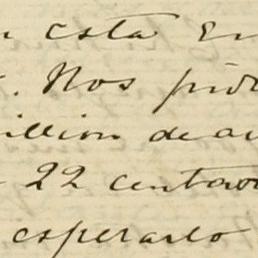 esta En
. Nos pid
illion de au
22 centavo
esperarlo